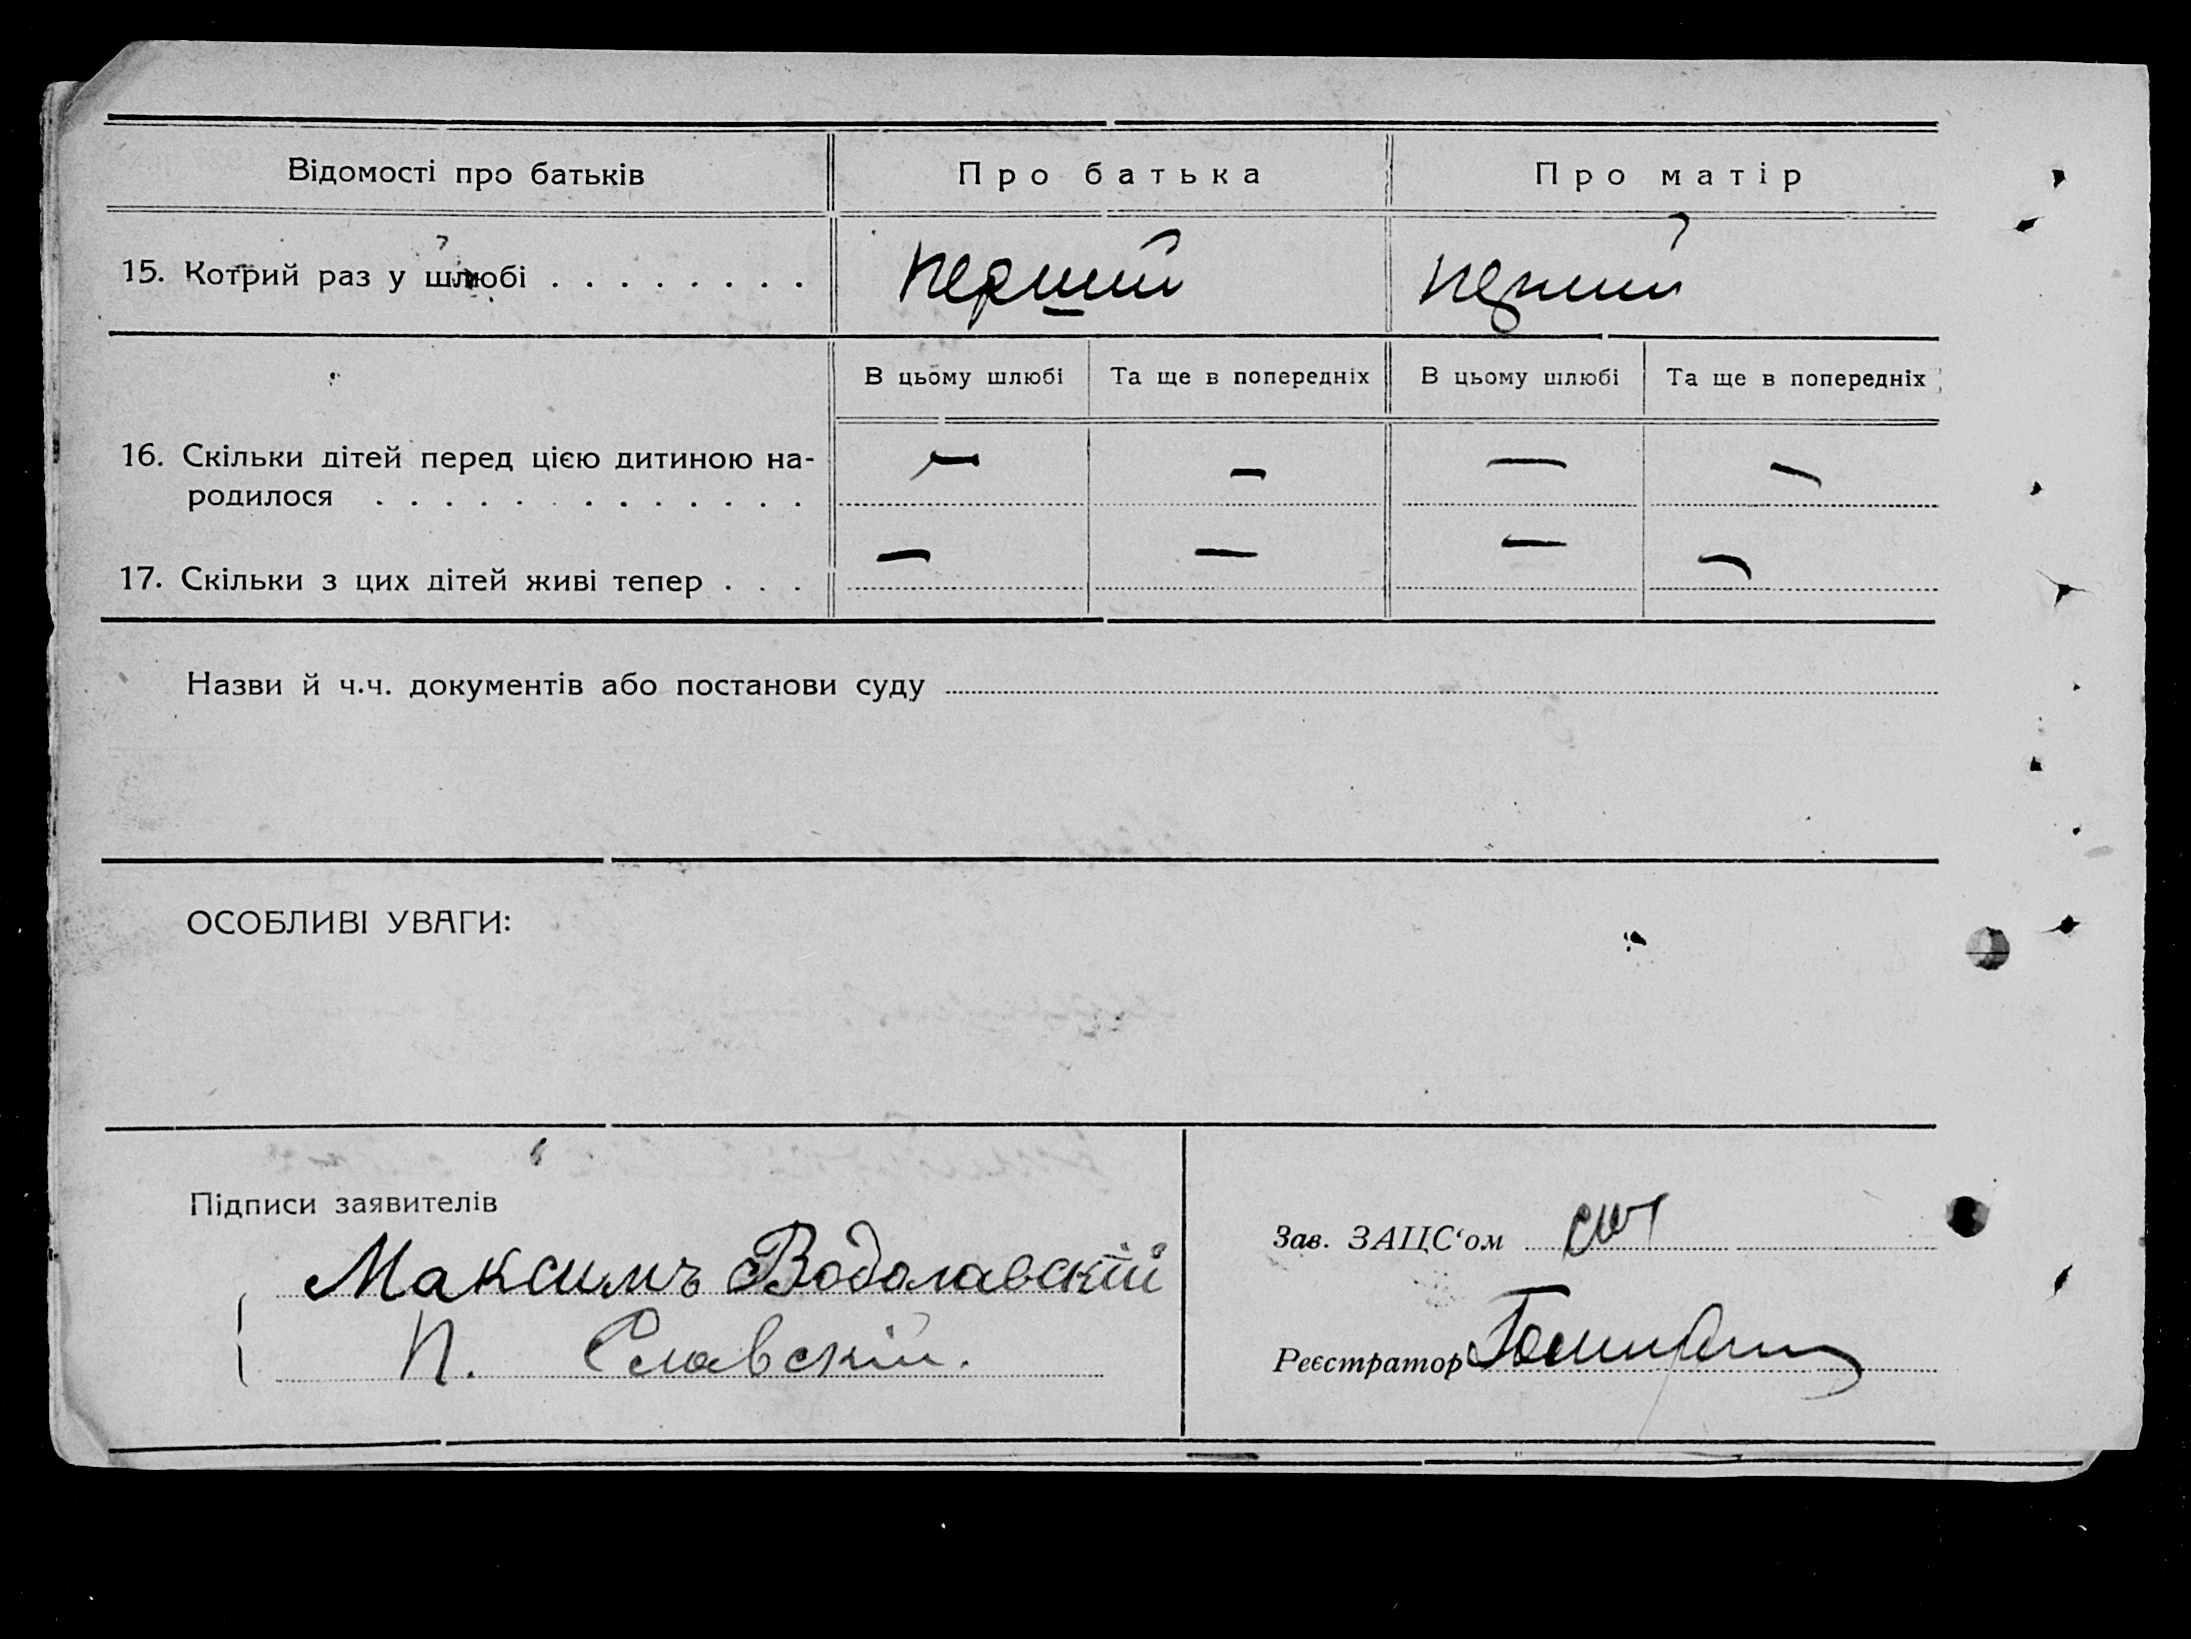 Відомості про батьків Про батька Про матір
15. Котрий раз у шлюбі . . . . . . . . перший перший
В цьому шлюбі Та ще в попередніх В цьому шлюбі Та ще в попередніх
16. Скільки дітей перед цією дитиною на- — — — —
родилося . . . . . . . . . . . . .
17. Скільки з цих дітей живі тепер . . . — — — —
Назви й ч.ч. документів або постанови суду
ОСОБЛИВІ УВАГИ:
Підписи заявителів
Максимъ Водолавскій
П. Славскій.
Зав. ЗАЦС‘ом
Реєстратор